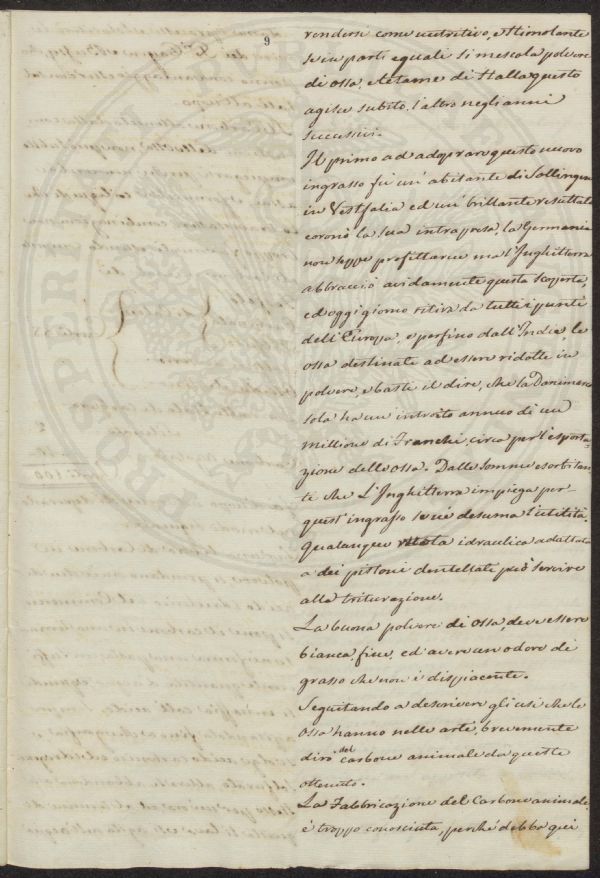 9
rendersi come nutritivo, e Stimolante
se in parti eguali si mescola polvere
di ossa, e letame di Stalla questo
agisce subito, l'altro negli anni
successivi.
Il primo ad adoprare questo nuovo
ingrasso fu un' abitante di Sollingen
in Vestfalia ed un' brillante resultato
coronò la sua intrapresa, la Germania
non seppe profittarne ma l'Inghilterra
abbracciò avidamente questa scoperta,
ed oggi giorno ritira da tutti i punti
dell'Europa, e perfino dall'Indie, le
ossa destinate ad essere ridotte in
polvere, e basti il dire, che la Danimarca
sola ha un introito annuo di un
millione di Franchi, circa per l'esporta-
zione delle ossa. Dalle somme esorbitan-
ti che L'Inghilterra impiega per
quest' ingrasso se ne desuma l'utilità.
Qualunque ruota idraulica adattata
a dei pistoni dentellati può servire
alla triturazione.
La buona polvere di ossa, deve essere
bianca, fine, ed avere un odore di
grasso che non è dispiacente.
Seguitando a descrivere gli usi che le
ossa hanno nelle arti, brevemente
dirò del carbone animale da queste
ottenuto.
La Fabbricazione del Carbone animale
è troppo conosciuta, perché debba qui